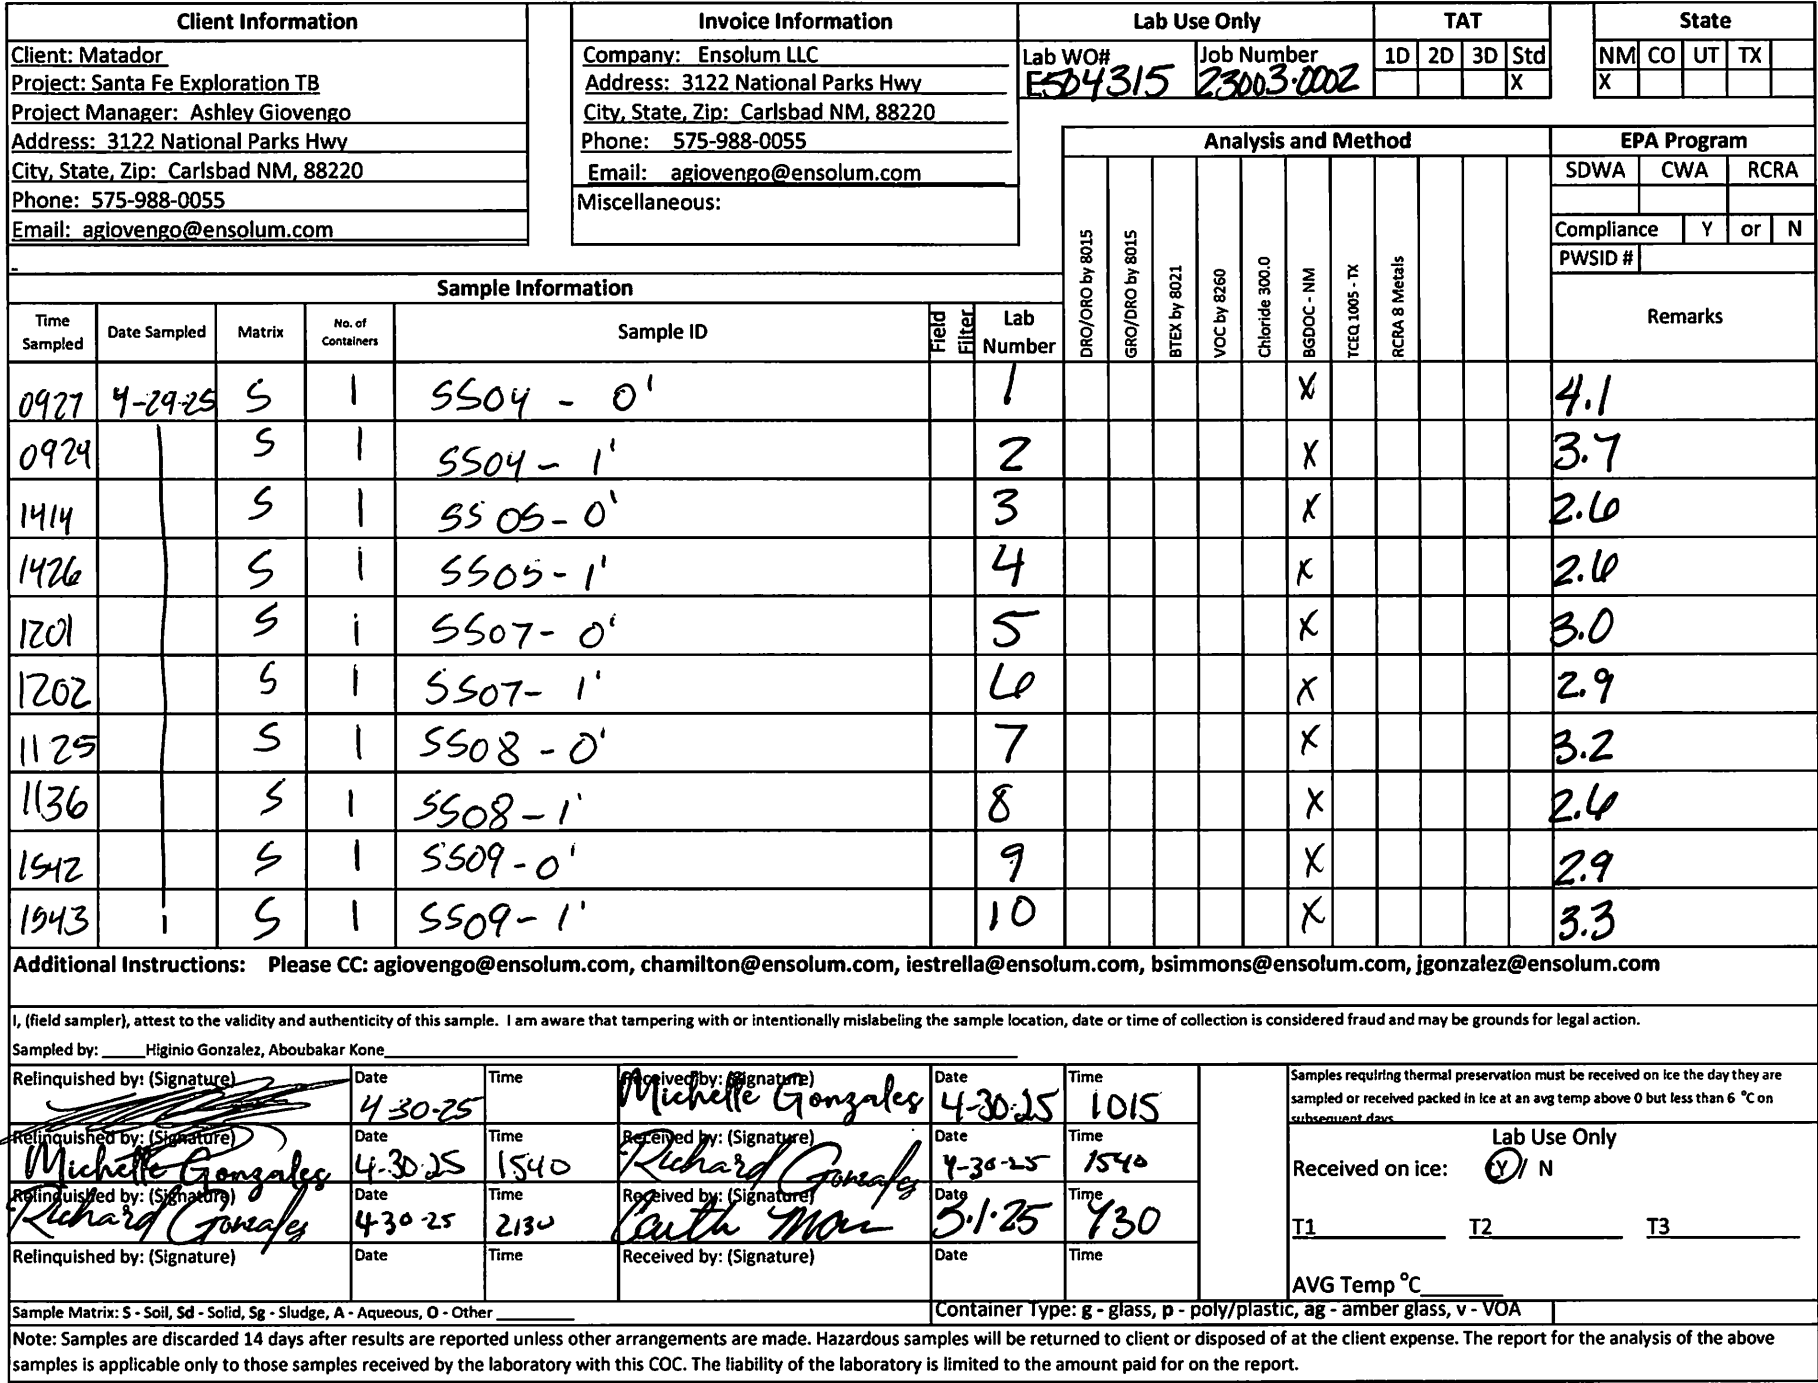 Client Information
Client: Matador
Project: Santa Fe Exploration TB
Project Manager: Ashley Giovengo
Address: 3122 National Parks Hwy
City, State, Zip: Carlsbad NM, 88220
Phone: 575-988-0055
Email: agiovengo@ensolum.com
Invoice Information
Company: Ensolum LLC
Address: 3122 National Parks Hwy
City, State, Zip: Carlsbad NM, 88220
Phone: 575-988-0055
Email: agiovengo@ensolum.com
Miscellaneous:
Lab Use Only
Lab WO# Job Number
E504315 23003.0002
TAT
1D 2D 3D Std
X
State
NM CO UT TX
X
Analysis and Method
EPA Program
SDWA CWA RCRA
Compliance Y or N
PWSID #
Sample Information
Time Sampled Date Sampled Matrix No. of Containers Sample ID Field Filter Lab Number DRO/ORO by 8015 GRO/DRO by 8015 BTEX by 8021 VOC by 8260 Chloride 300.0 BGDOC - NM TCEQ 1005 - TX RCRA 8 Metals Remarks
0927 4-29-25 S 1 SS04 - 0' 1 X 4.1
0929 S 1 SS04 - 1' 2 X 3.7
1414 S 1 SS05 - 0' 3 X 2.6
1426 S 1 SS05 - 1' 4 X 2.6
1201 S 1 SS07 - 0' 5 X 3.0
1202 S 1 SS07 - 1' 6 X 2.9
1125 S 1 SS08 - 0' 7 X 3.2
1136 S 1 SS08 - 1' 8 X 2.6
1542 S 1 SS09 - 0' 9 X 2.9
1543 S 1 SS09 - 1' 10 X 3.3
Additional Instructions: Please CC: agiovengo@ensolum.com, chamilton@ensolum.com, iestrella@ensolum.com, bsimmons@ensolum.com, jgonzalez@ensolum.com
I, (field sampler), attest to the validity and authenticity of this sample. I am aware that tampering with or intentionally mislabeling the sample location, date or time of collection is considered fraud and may be grounds for legal action.
Sampled by: Higinio Gonzalez, Aboubakar Kone
Relinquished by: (Signature) Date Time Received by: (Signature) Date Time
4-30-25 Michelle Gonzales 4-30-25 1015
Relinquished by: (Signature) Date Time Received by: (Signature) Date Time
Michelle Gonzales 4-30-25 1540 Richard Gonzales 4-30-25 1540
Relinquished by: (Signature) Date Time Received by: (Signature) Date Time
Richard Gonzales 4-30-25 2130 5.1.25 730
Relinquished by: (Signature) Date Time Received by: (Signature) Date Time
Samples requiring thermal preservation must be received on ice the day they are
sampled or received packed in ice at an avg temp above 0 but less than 6 °C on
subsequent days.
Lab Use Only
Received on ice: Y / N
T1 T2 T3
AVG Temp °C
Sample Matrix: S - Soil, Sd - Solid, Sg - Sludge, A - Aqueous, O - Other
Container Type: g - glass, p - poly/plastic, ag - amber glass, v - VOA
Note: Samples are discarded 14 days after results are reported unless other arrangements are made. Hazardous samples will be returned to client or disposed of at the client expense. The report for the analysis of the above
samples is applicable only to those samples received by the laboratory with this COC. The liability of the laboratory is limited to the amount paid for on the report.